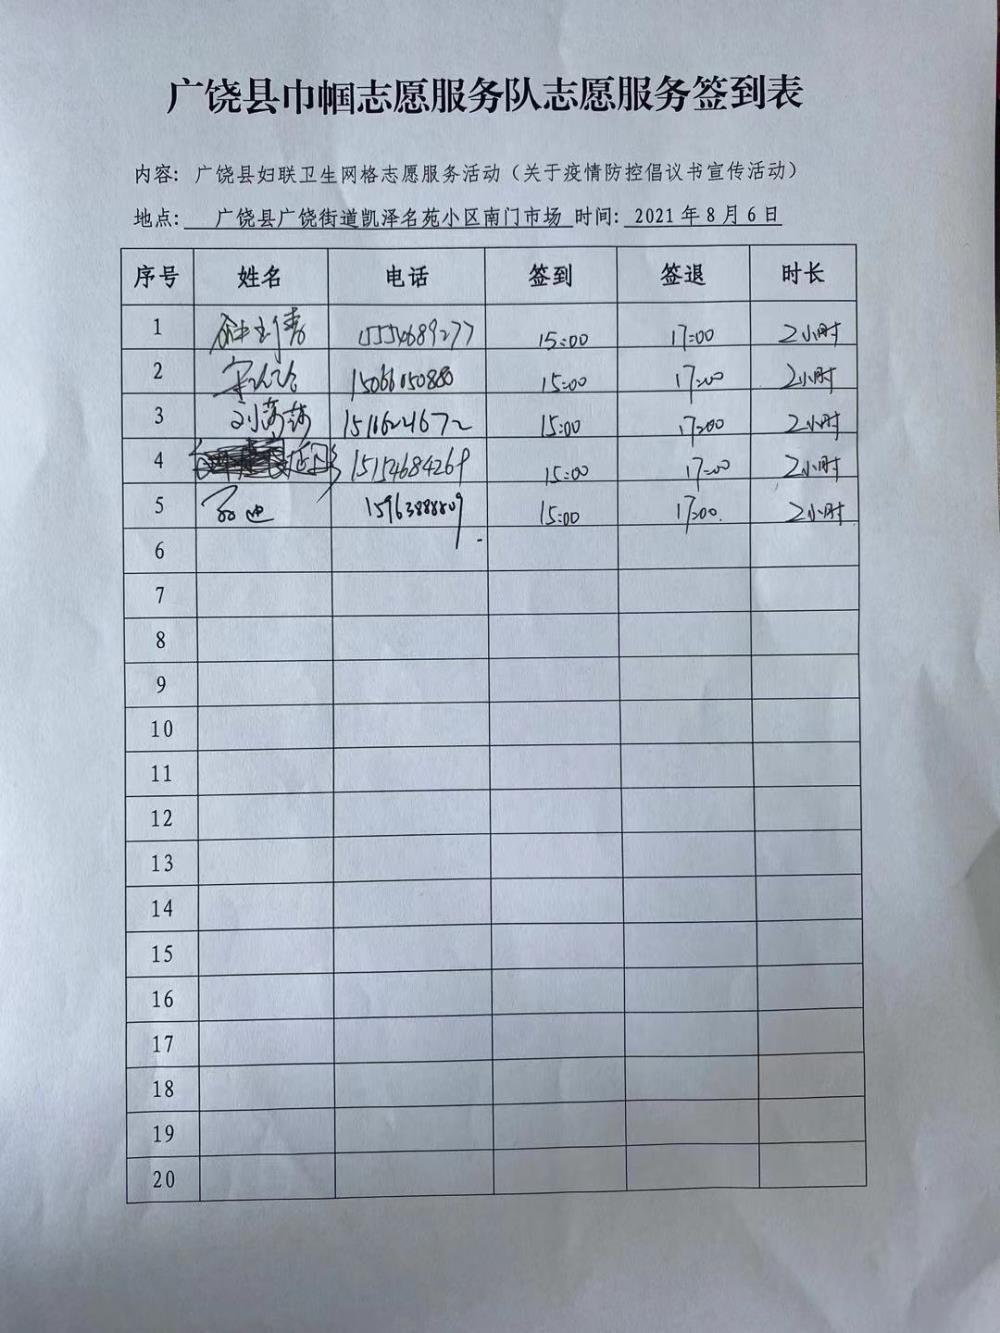 广饶县巾帼志愿服务队志愿服务签到表
内容: 广饶县妇联卫生网格志愿服务活动（关于疫情防控倡议书宣传活动）
地点: 广饶县广饶街道凯泽名苑小区南门市场 时间: 2021年8月6日
序号 姓名 电话 签到 签退 时长
1 15:00 17:00 2小时
2 15066150880 15:00 17:00 2小时
3 刘莎莎 15116224672 15:00 17:00 2小时
4 15154684269 15:00 17:00 2小时
5 15:00 17:00 2小时
6
7
8
9
10
11
12
13
14
15
16
17
18
19
20